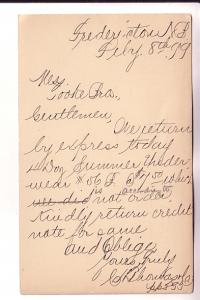 Fredericton N.B
Feby. 8th 99
Mess
Tooke Bros.
Gentlemen,
We return
by express today
1/2 Doz Summer Under
wear # 56 F
not order.
Kindly return credit
note for same
and Oblige
Yours truly